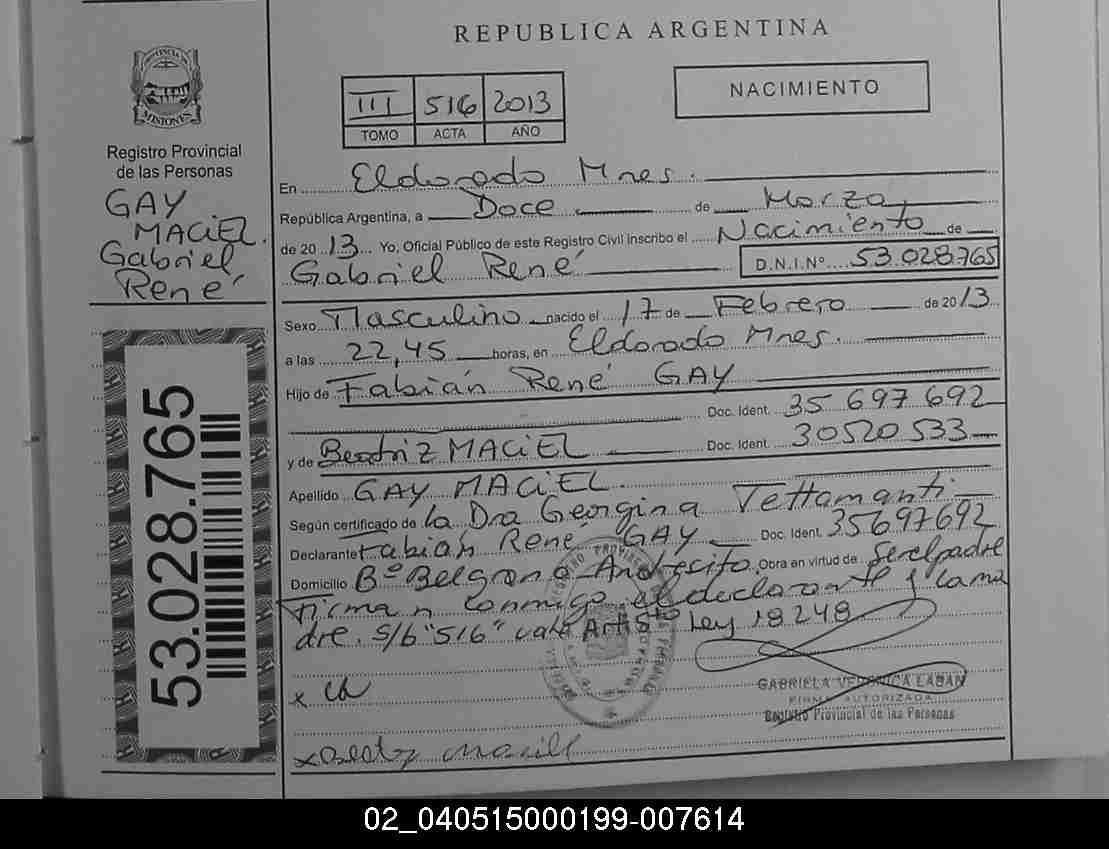 REPUBLICA ARGENTINA
PROVINCIA DE
MISIONES
Registro Provincial
de las Personas
GAY
MACIEL.
Gabriel
René
53.028.765
III 516 2013
TOMO ACTA AÑO
NACIMIENTO
En Eldorado Mnes.
República Argentina, a Doce de Marzo
de 2013 Yo, Oficial Público de este Registro Civil inscribo el Nacimiento de
Gabriel René D.N.I.Nº 53.028.765
Sexo Masculino nacido el 17 de Febrero de 2013
a las 22,45 horas, en Eldorado Mnes.
Hijo de Fabián René GAY
Doc. Ident. 35 697 692
y de Beatriz MACIEL Doc. Ident. 30520533
Apellido GAY MACIEL.
Según certificado de la Dra Georgina Tettamanti
Declarante Fabián René GAY Doc. Ident. 35697692
Domicilio Bº Belgrano Andresito. Obra en virtud de Ser el padre
Firman conmigo el declarante y la ma
dre. S/b "516" vale Art 5to Ley 18248
GABRIELA VERONICA LABAN
FIRMA AUTORIZADA
Registro Provincial de las Personas
x
x Beatriz Maciel
02_040515000199-007614